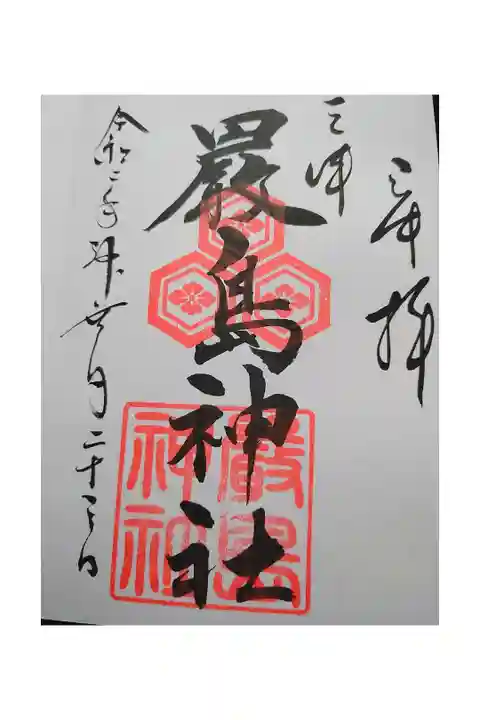 奉拝
三津
嚴島神社
嚴島
神社
令和二年
月二十三日